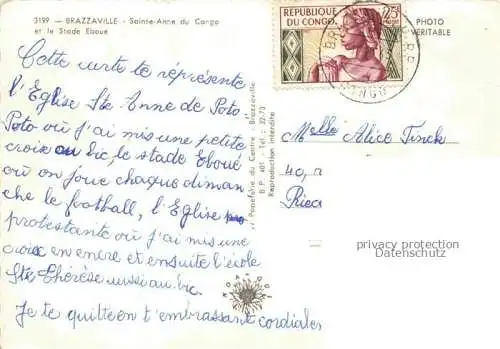 3199 — BRAZZAVILLE - Sainte-Anne du Congo
et le Stade Eboué
REPUBLIQUE
DU CONGO
25F
PHOTO
VERITABLE
Cette carte te représente
l'Eglise Ste Anne de Poto
Poto où j'ai mis une petite
croix au bic, le stade Eboué
où on joue chaque diman
che le football, l'Eglise
protestante où j'ai mis une
croix en encre et ensuite l'école
Ste Thérèse aussi au bic.
Je te quitte en t'embrassant cordiale
"Papeterie du Centre" - Brazzaville
B.P. 401 Tél : 22-73
Reproduction interdite
Melle Alice Finck
40,
privacy protection
Datenschutz